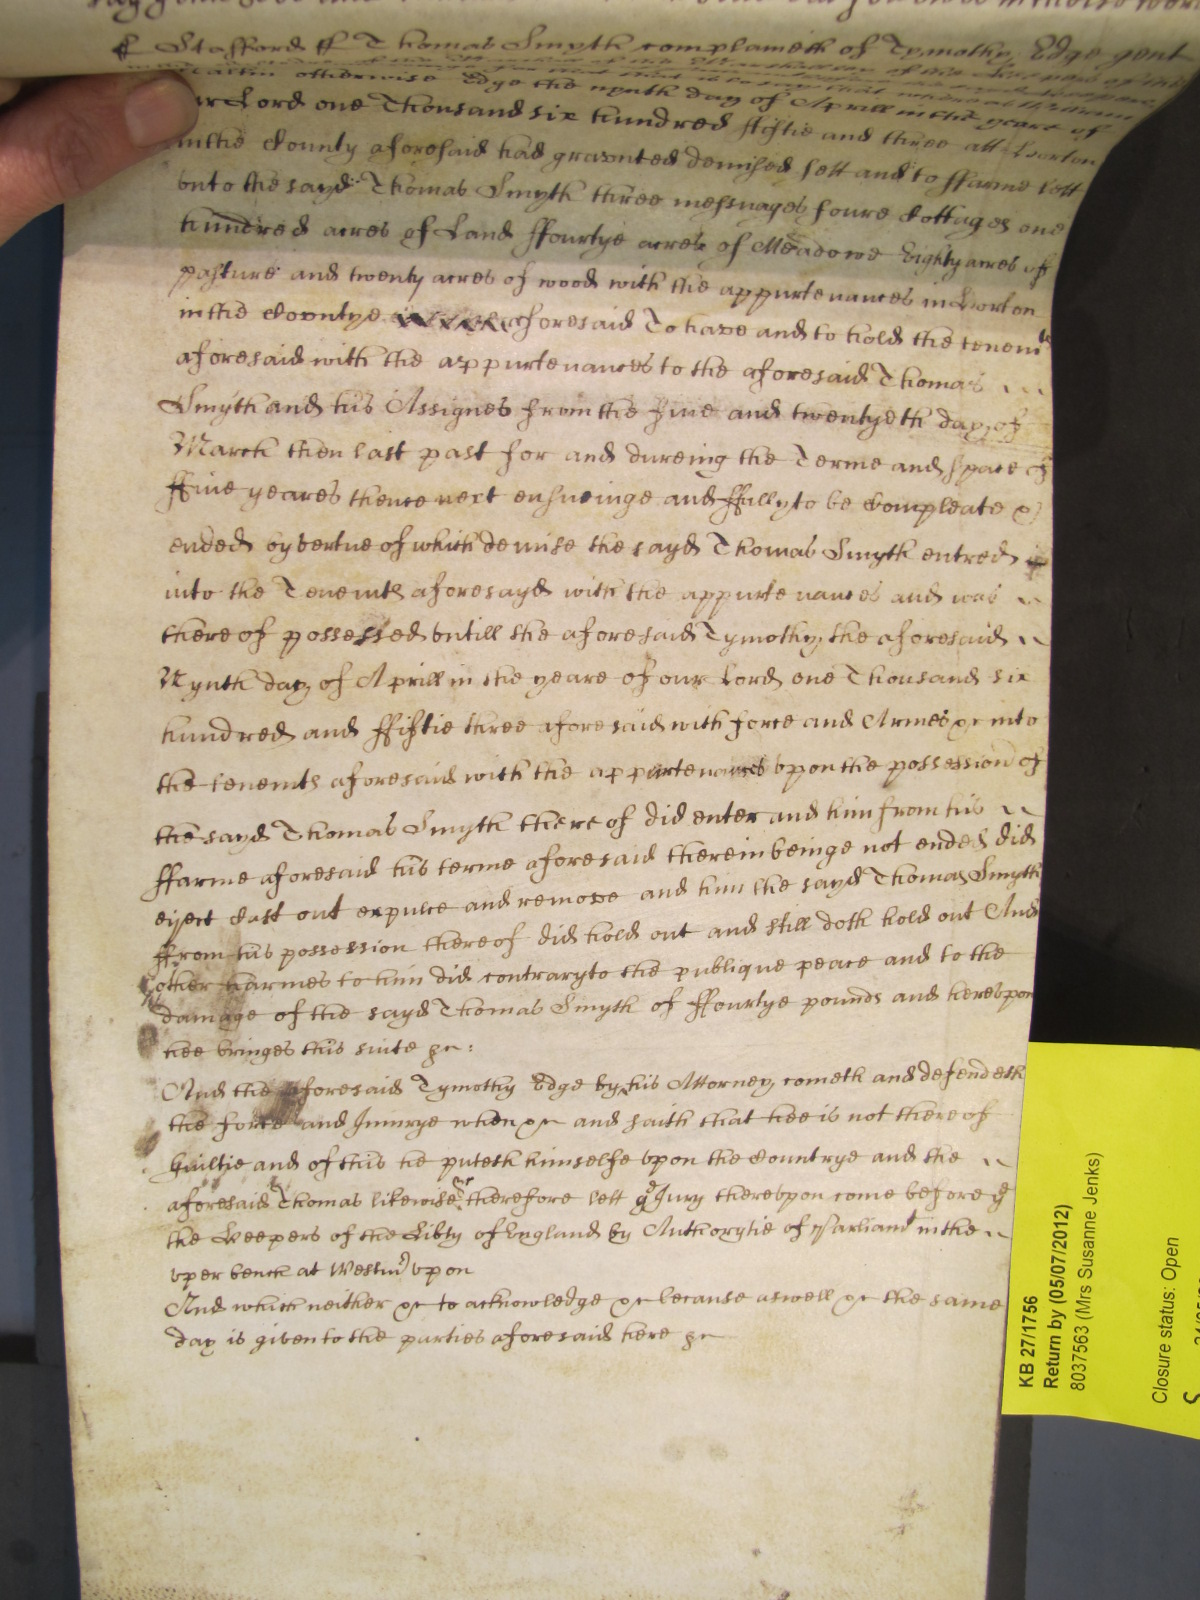 Stafford ss Thomas Smyth complaineth of Tymothy Edge gent
otherwise Edge the nynth day of Aprill in the yeare of
our Lord one Thousand six hundred ffiftie and three att Horton
in the County aforesaid had graunted demised sett and to ffarme lett
vnto the sayd Thomas Smyth three messuages foure Cottages one
hundred acres of Land ffourtye acres of Meadowe Eighty acres of
pasture and twenty acres of wood with the appurtenances in Horton
in the Countye aforesaid To have and to hold the tenemts
aforesaid with the appurtenances to the aforesaid Thomas
Smyth and his Assignes from the five and twentyeth day of
March then last past for and dureing the Terme and space of
ffive yeares thence next ensueinge and ffully to be Compleate &
ended by vertue of which demise the sayd Thomas Smyth entred
into the Tenemts aforesayd with the appurtenances and was
thereof possessed vntill the aforesaid Tymothy the aforesaid
Nynth day of Aprill in the yeare of our Lord one Thousand six
hundred and ffiftie three aforesaid with force and Armes &c into
the tenemts aforesaid with the appurtenances vpon the possession of
the sayd Thomas Smyth thereof did enter and him from his
ffarme aforesaid his terme aforesaid therein beinge not ended did
eiject Cast out expulce and remove and him the sayd Thomas Smyth
ffrom his possession thereof did hold out and still doth hold out And
other harmes to him did contrary to the publique peace and to the
damage of the sayd Thomas Smyth of ffourtye pounds and herevpon
hee bringes this suite &c:
And the aforesaid Tymothy Edge by his Attorney cometh and defendeth
the force and Iniurye when &c and saith that hee is not thereof
Guiltie and of this he puteth himselfe vpon the Countrye and the
aforesaid Thomas likewise &c therefore lett ye Jury therevpon come before
the Keepers of the Libty of England by Authorytie of Parliamt in the
vper bench at Westm vpon
And which neither &c to acknowledge &c because aswell &c the same
day is given to the parties aforesaid here &c
KB 27/1756
Return by (05/07/2012)
8037563 (Mrs Susanne Jenks)
Closure status: Open